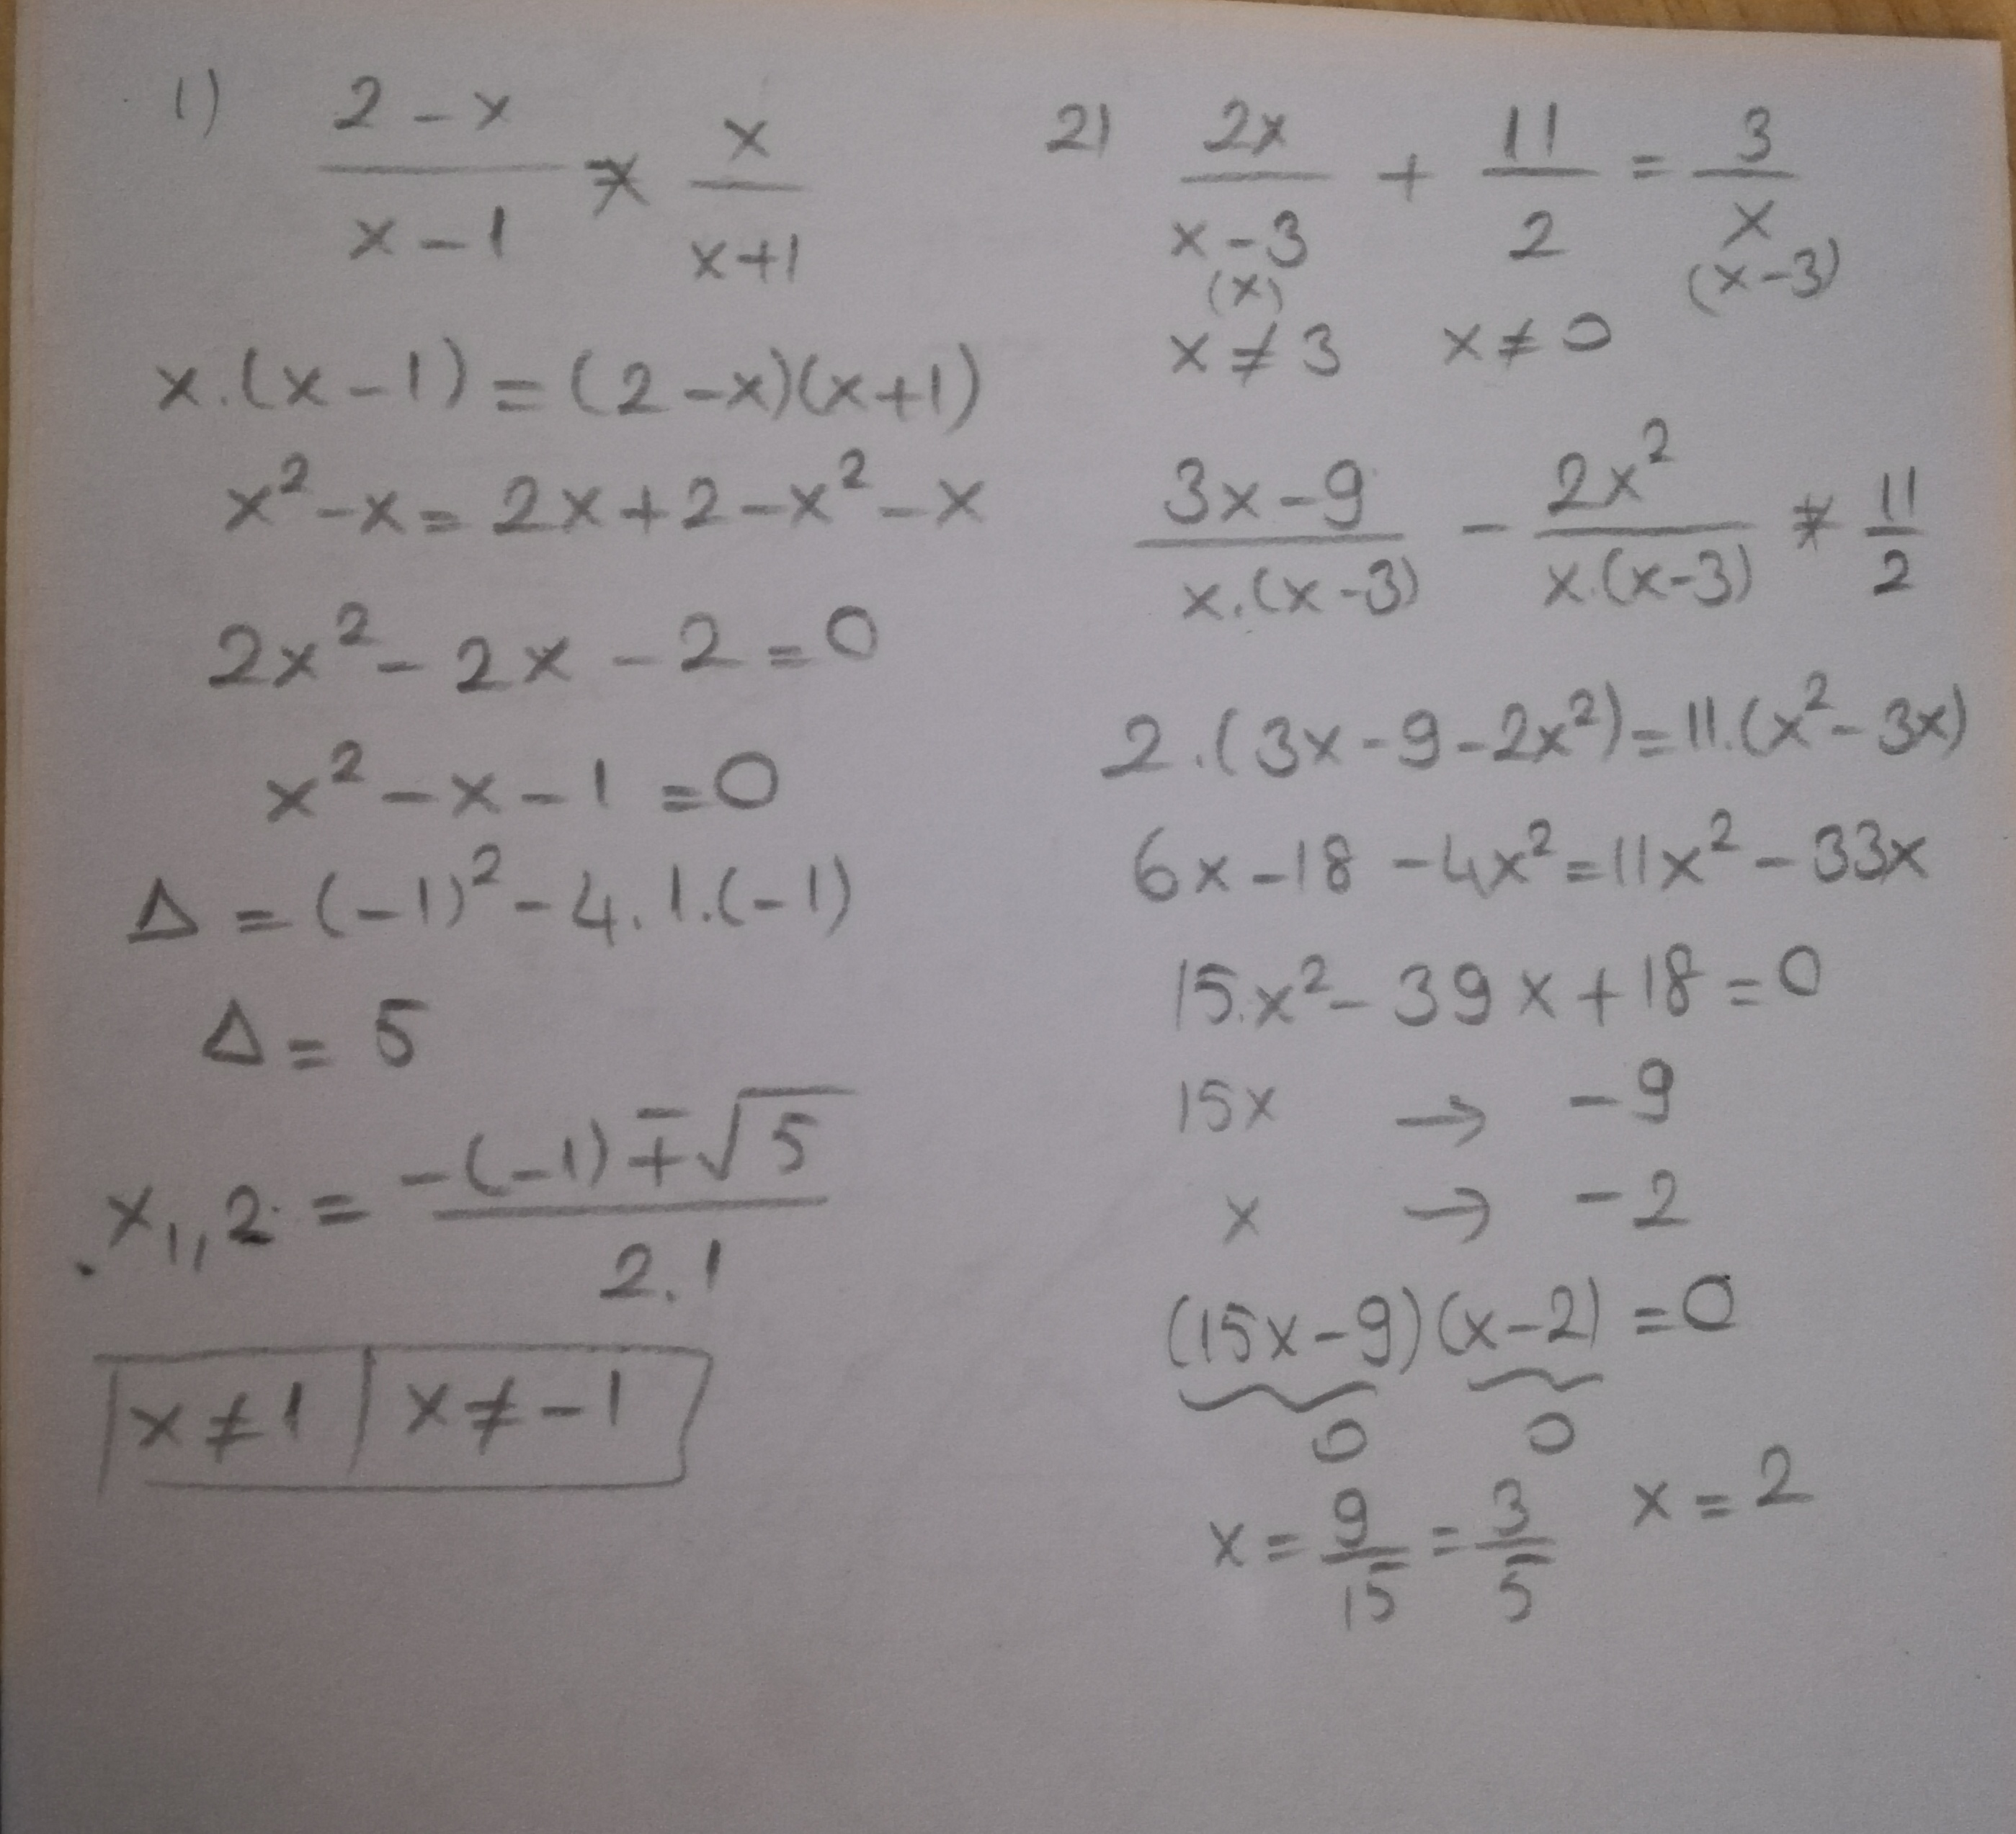 1) (2-x)/(x-1) = x/(x+1)
x.(x-1)=(2-x)(x+1)
x²-x=2x+2-x²-x
2x²-2x-2=0
x²-x-1=0
Δ=(-1)²-4.1.(-1)
Δ=5
x₁,₂=(-(-1)∓√5)/(2.1)
x≠1 | x≠-1
2) 2x/(x-3) + 11/2 = 3/x
(x) (x-3)
x≠3 x≠0
(3x-9)/(x.(x-3)) - 2x²/(x.(x-3)) = 11/2
2.(3x-9-2x²)=11.(x²-3x)
6x-18-4x²=11x²-33x
15x²-39x+18=0
15x → -9
x → -2
(15x-9)(x-2)=0
0 0
x=9/15=3/5 x=2